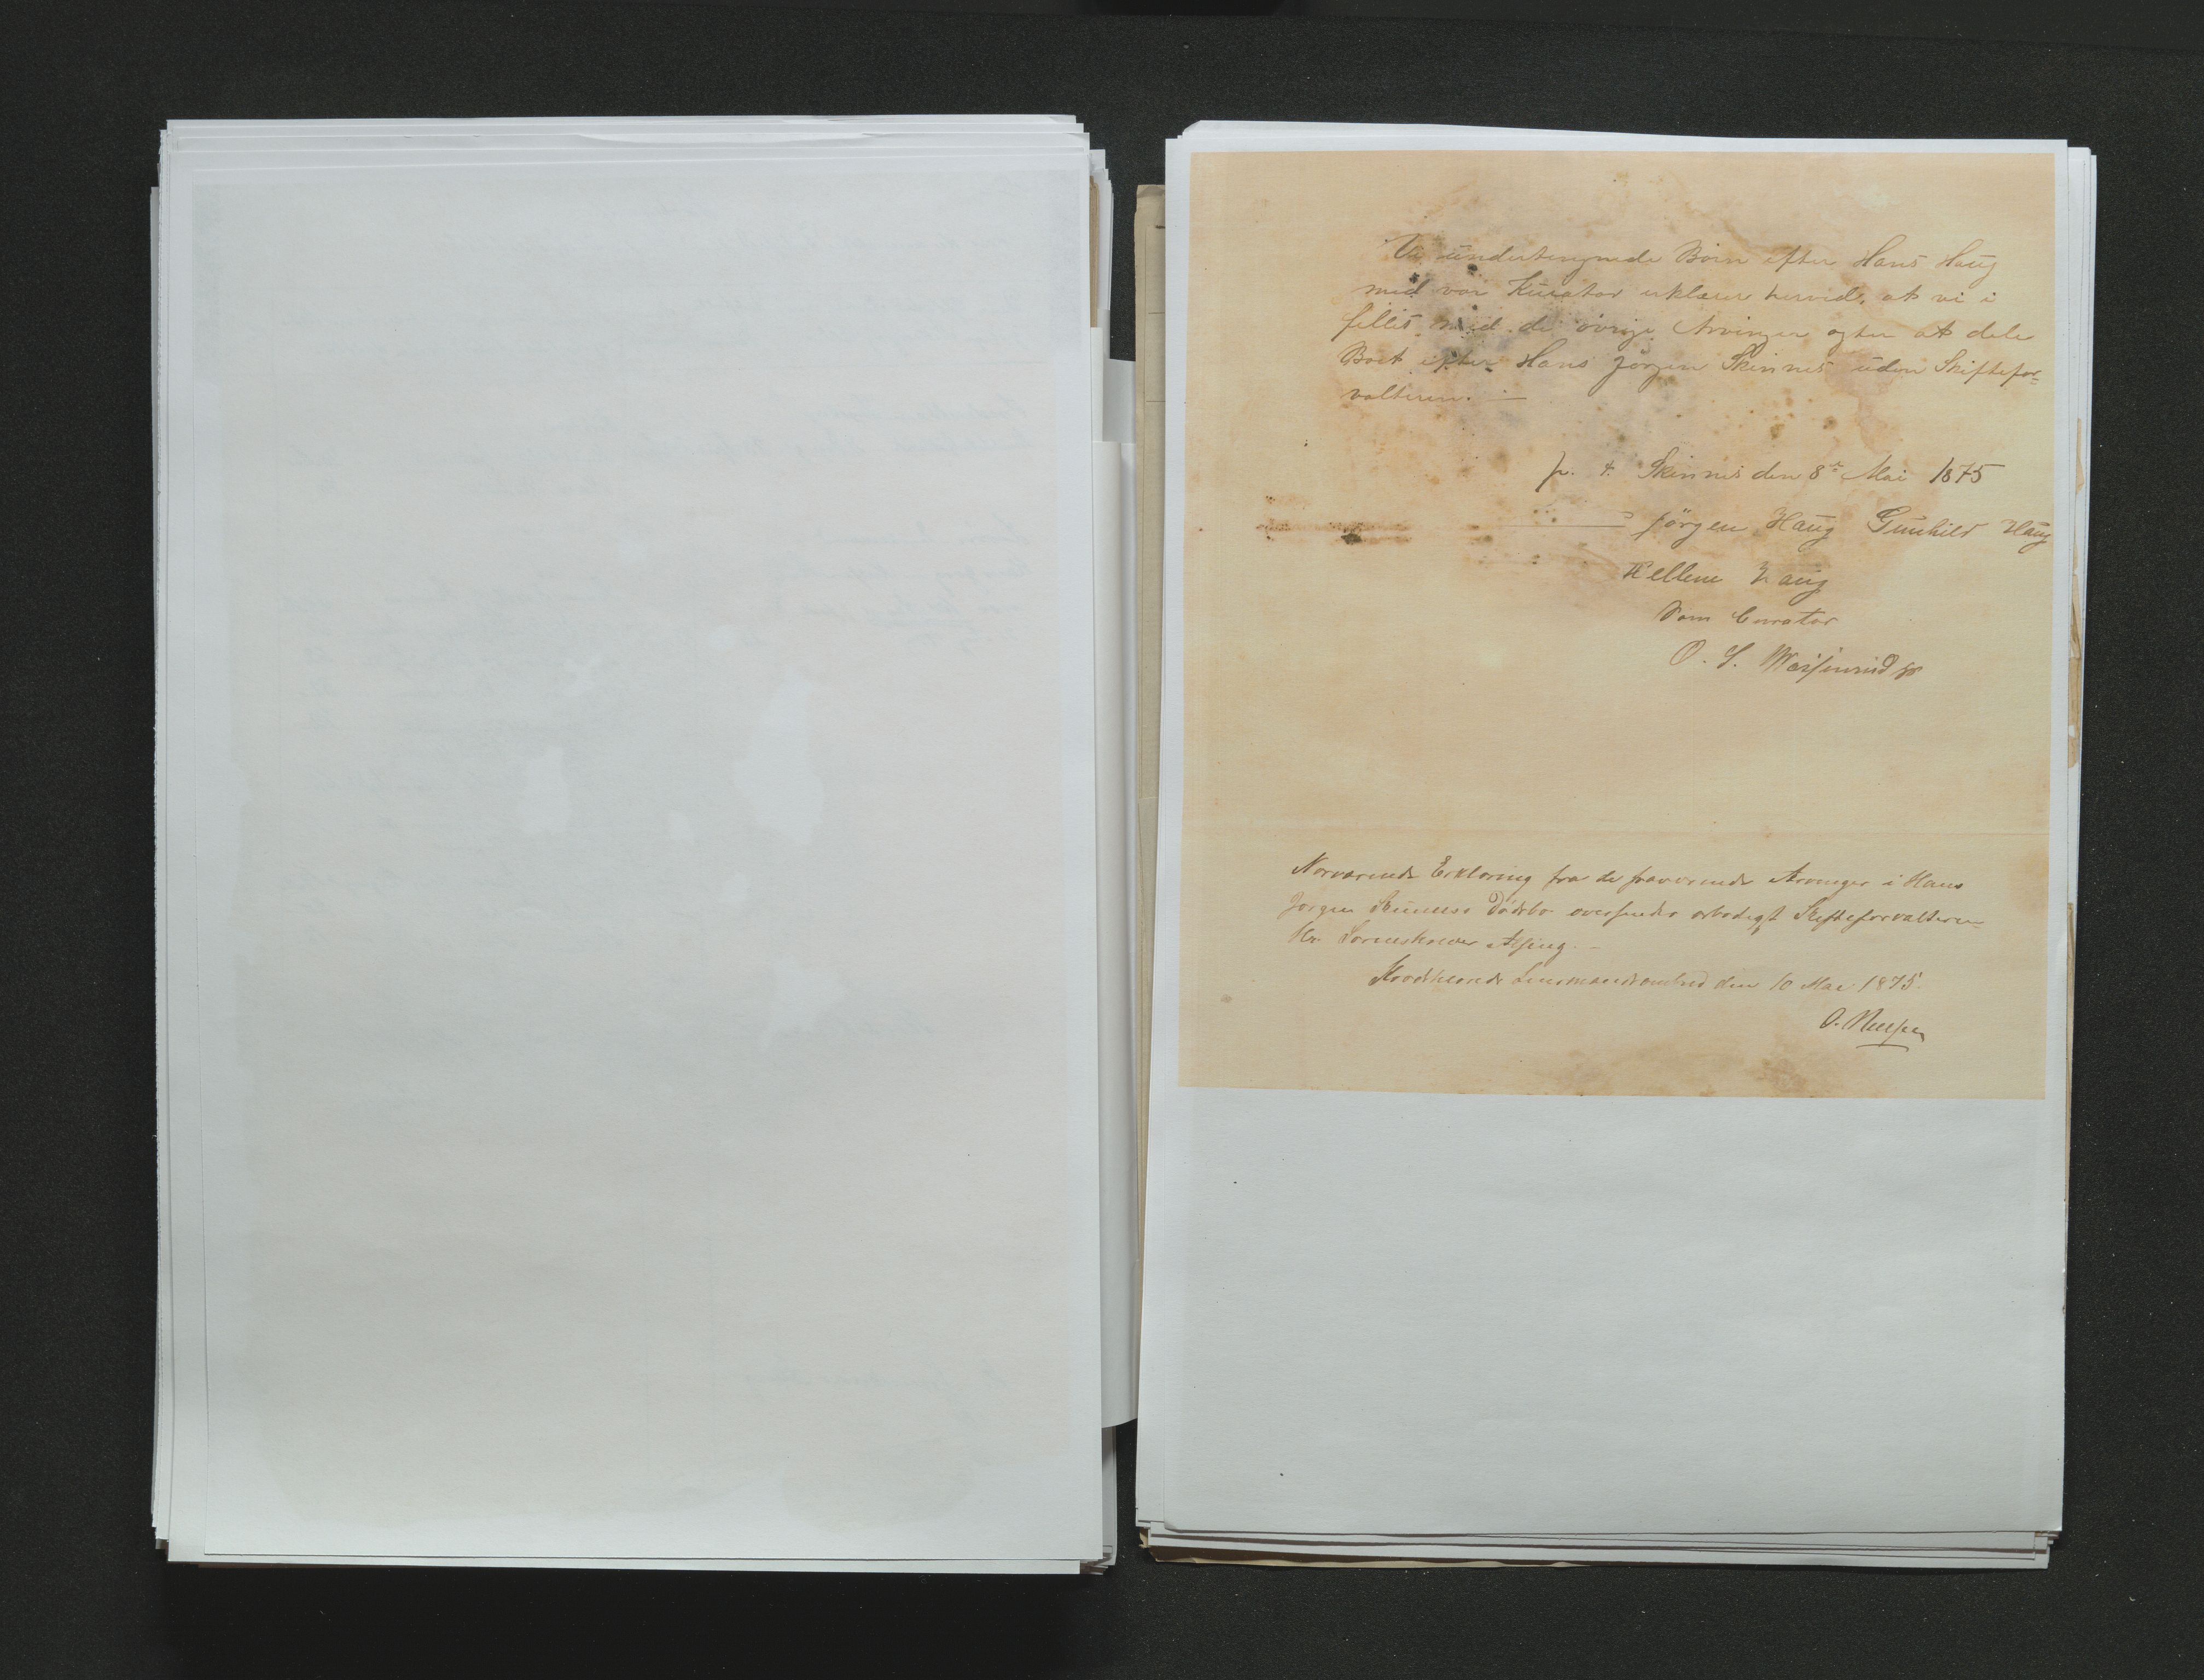 Vi undertegnede Börn efter Hans Haug
med vor Kurator erklærer herved, at vi i
fellis med de övrige Arvinger agter at dele
Boet efter Hans Jörgen Skinnes uden Skiftefor=
valteren. —
p. t. Skinnes den 8de Mai 1875
Jörgen Haug Gunhild Haug
Hellene Haug
Som Curator
O. S.
Nærværende Erklæring fra de fraværende Arvinger i Hans
Jørgen Skinnes Dødsbo oversendes ærbødigst Skifteforvalteren
Hr. Sorenskriver
Lensmandsombud den 10 Mai 1875.
O. Nilsen